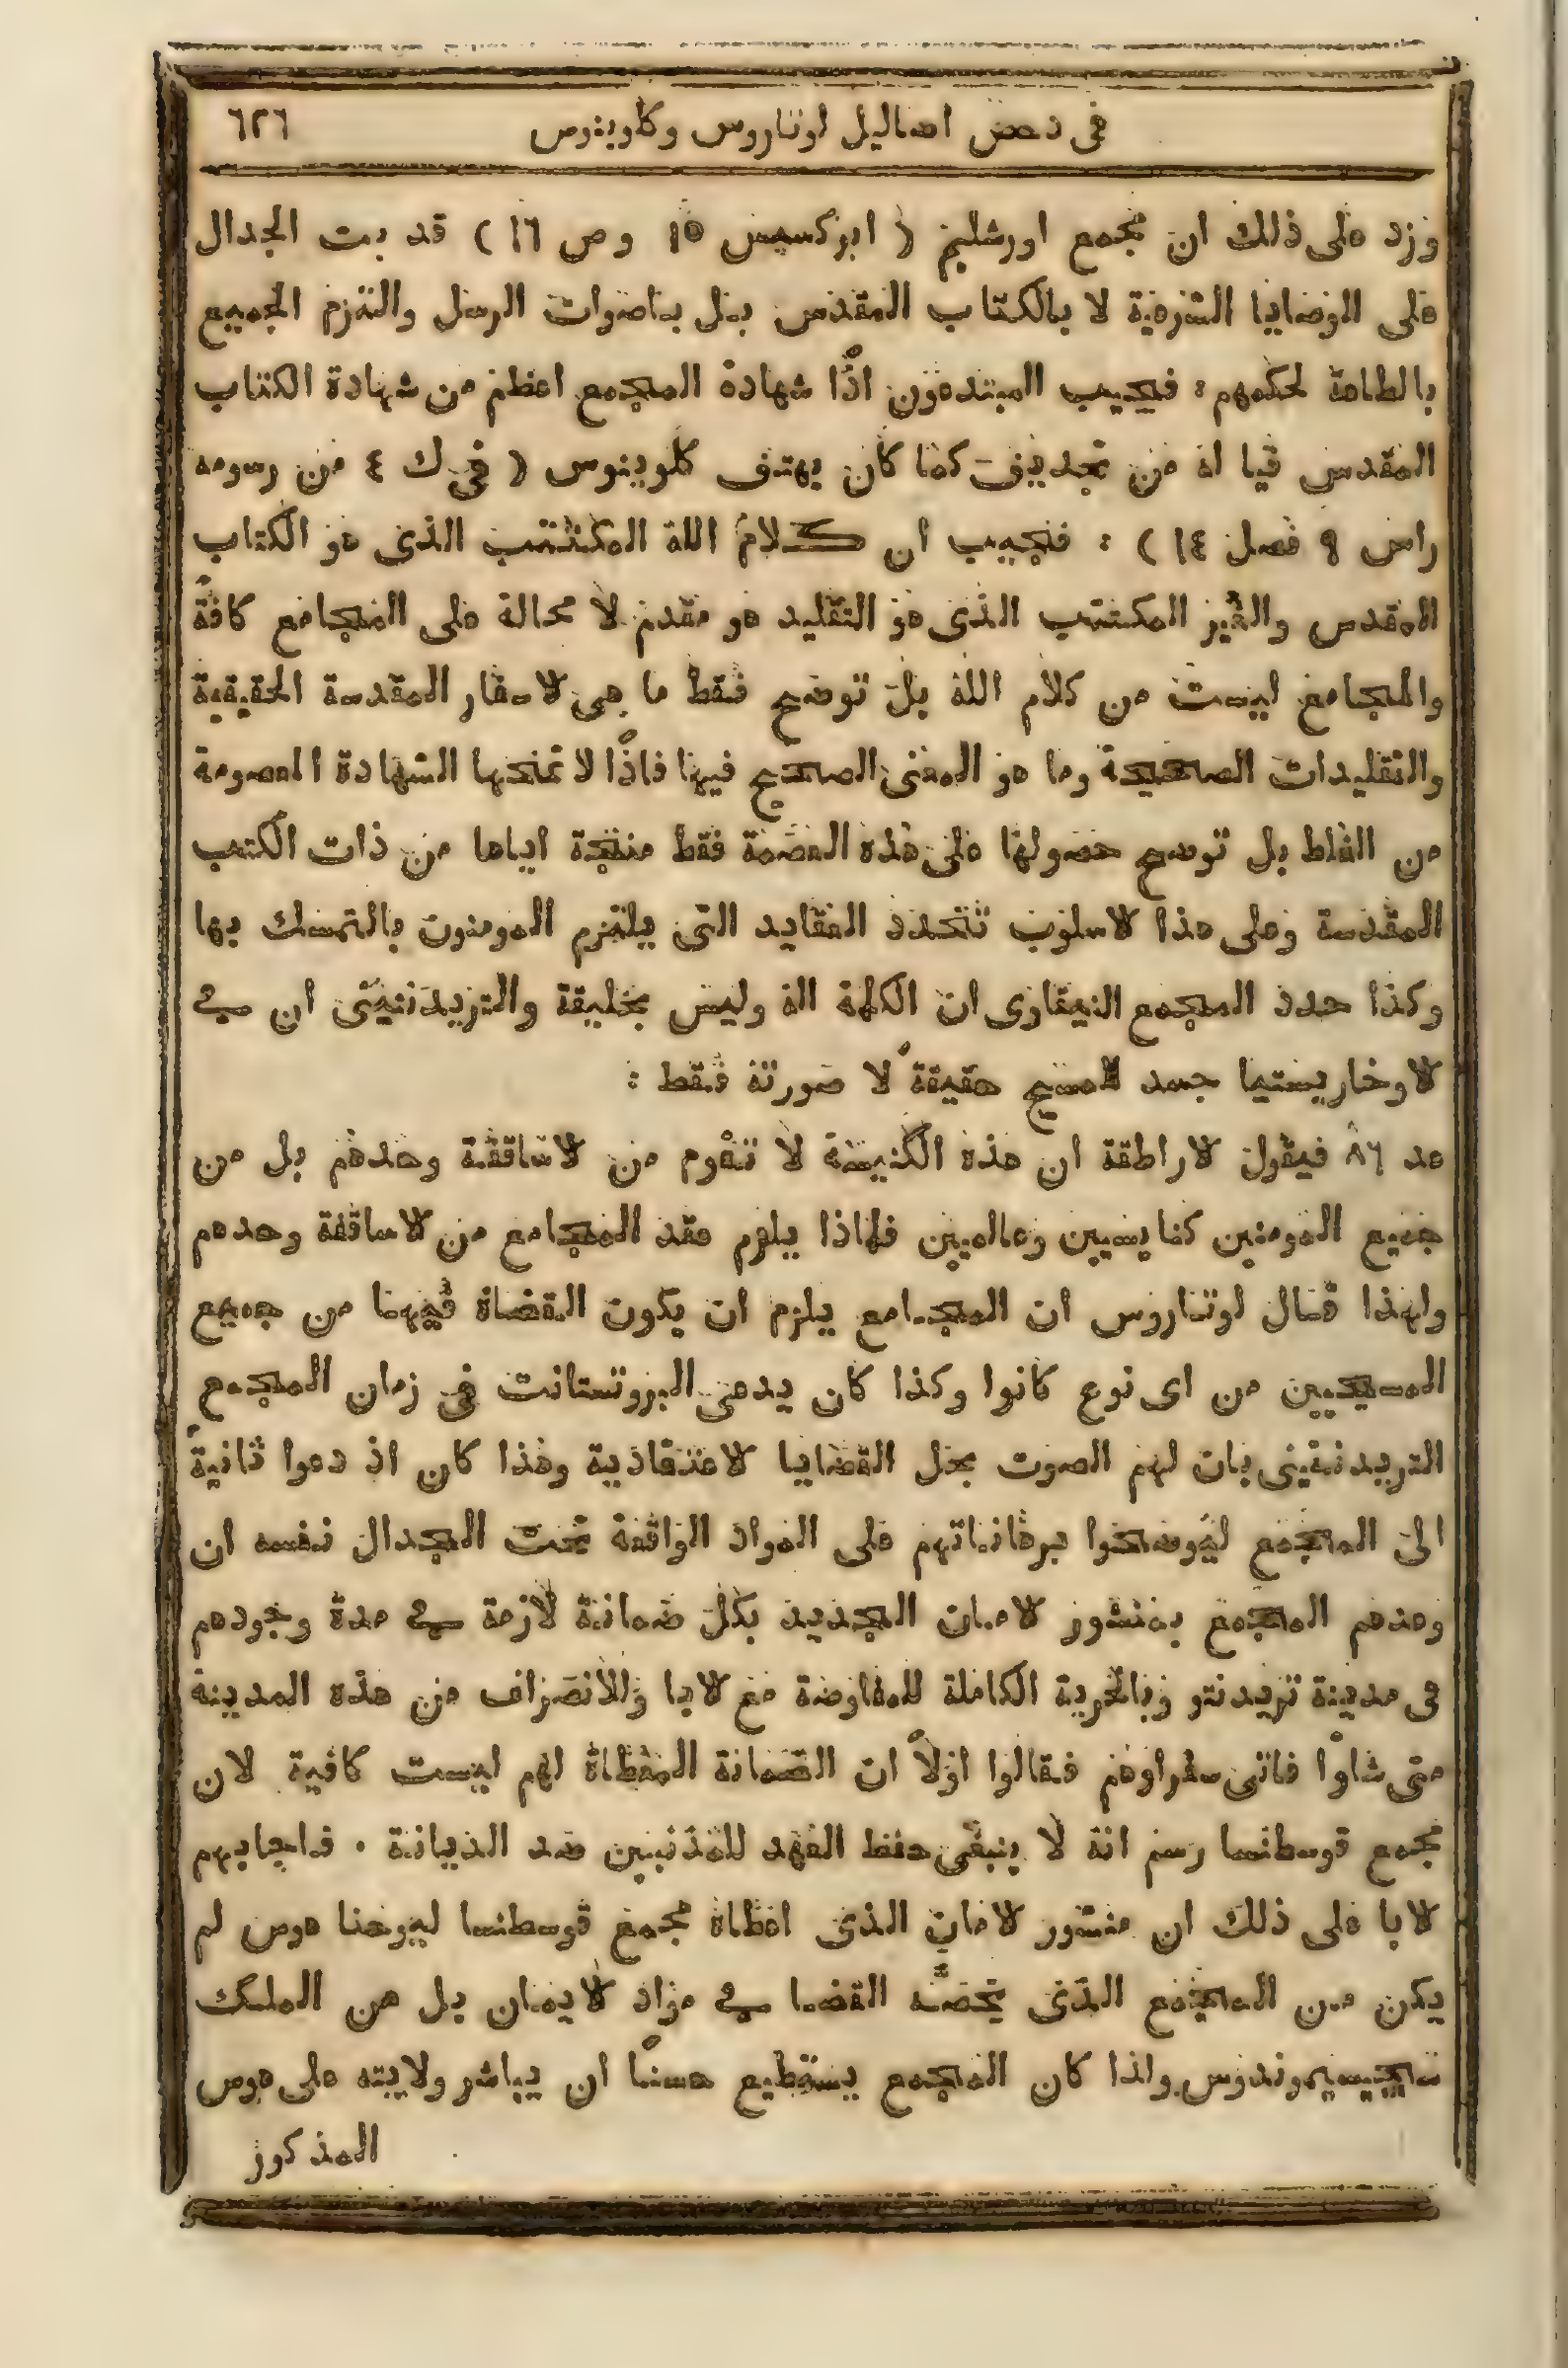 في دحض اضاليل لوتاروس وكلوينوس ٦٢٦
وزد على ذلك ان مجمع اورشليم ( ابركسيس ١٥ وص ١٦ ) قد بت الجدال
على الوضايا الشرعية لا بالكتاب المقدس بل باصوات الرسل والتزم الجميع
بالطاعة لحكمهم : فيجيب المبتدعون اذًا شهادة المجمع اعظم من شهادة الكتاب
المقدس فيا له من تجديف كما كان يهتف كلوينوس ( في ك ٤ من رسومه
راس ٩ فصل ١٤ ) : فنجيب ان كلام الله المكتتب الذي هو الكتاب
المقدس والغير المكتتب الذي هو التقليد هو مقدم لا محالة على المجامع كافةً
والمجامع ليست من كلام الله بل توضح فقط ما هي لاسفار المقدسة الحقيقية
والتقليدات الصحيحة وما هو المعنى الصحيح فيها فاذًا لا تمنحها الشهادة المعصومة
من الغلط بل توضح حصولها على هذه العصمة فقط منتجة اياها من ذات الكتب
المقدسة وعلى هذا لاسلوب تتحدد العقايد التي يلتزم المومنون بالتمسك بها
وكذا حدد المجمع النيقاوي ان الكلمة اله وليس بخليقة والتريدنتيني ان في
لاوخاريستيا جسد المسيح حقيقةً لا صورته فقط :
عد ٨٦ فيقول لاراطقة ان هذه الكنيسة لا تقوم من لاساقفة وحدهم بل من
جميع المومنين كنايسيين وعالميين فلماذا يلزم عقد المجامع من لاساقفة وحدهم
ولهذا قال لوتاروس ان المجامع يلزم ان يكون القضاة فيهما من جميع
المسيحيين من اي نوع كانوا وكذا كان يدعي البروتستانت في زمان المجمع
التريدنتيني بان لهم الصوت بحل القضايا لاعتقادية وهذا كان اذ دعوا ثانيةً
الى المجمع ليوضحوا برهاناتهم على المواد الواقفة تحت الجدال نفسه ان
وعدهم المجمع بمنشور لامان الجديد بكل ضمانة لازمة في مدة وجودهم
في مدينة تريدنتو وبالحرية الكاملة للمفاوضة مع لابا وللانصراف من هذه المدينة
متى شاوا فاتى سفراوهم فقالوا اولاً ان الضمانة المعطاة لهم ليست كافية لان
مجمع قوسطانسا رسم انه لا ينبغي حفظ العهد للمذنبين ضد الديانة . فاجابهم
لابا على ذلك ان منشور لامان الذي اعطاه مجمع قوسطنسا ليوحنا هوس لم
يكن من المجمع الذي يخصه القضا في مواد لايمان بل من الملك
سيجيسموندوس ولذا كان المجمع يستطيع حسنًا ان يباشر ولايته على هوس
المذكور